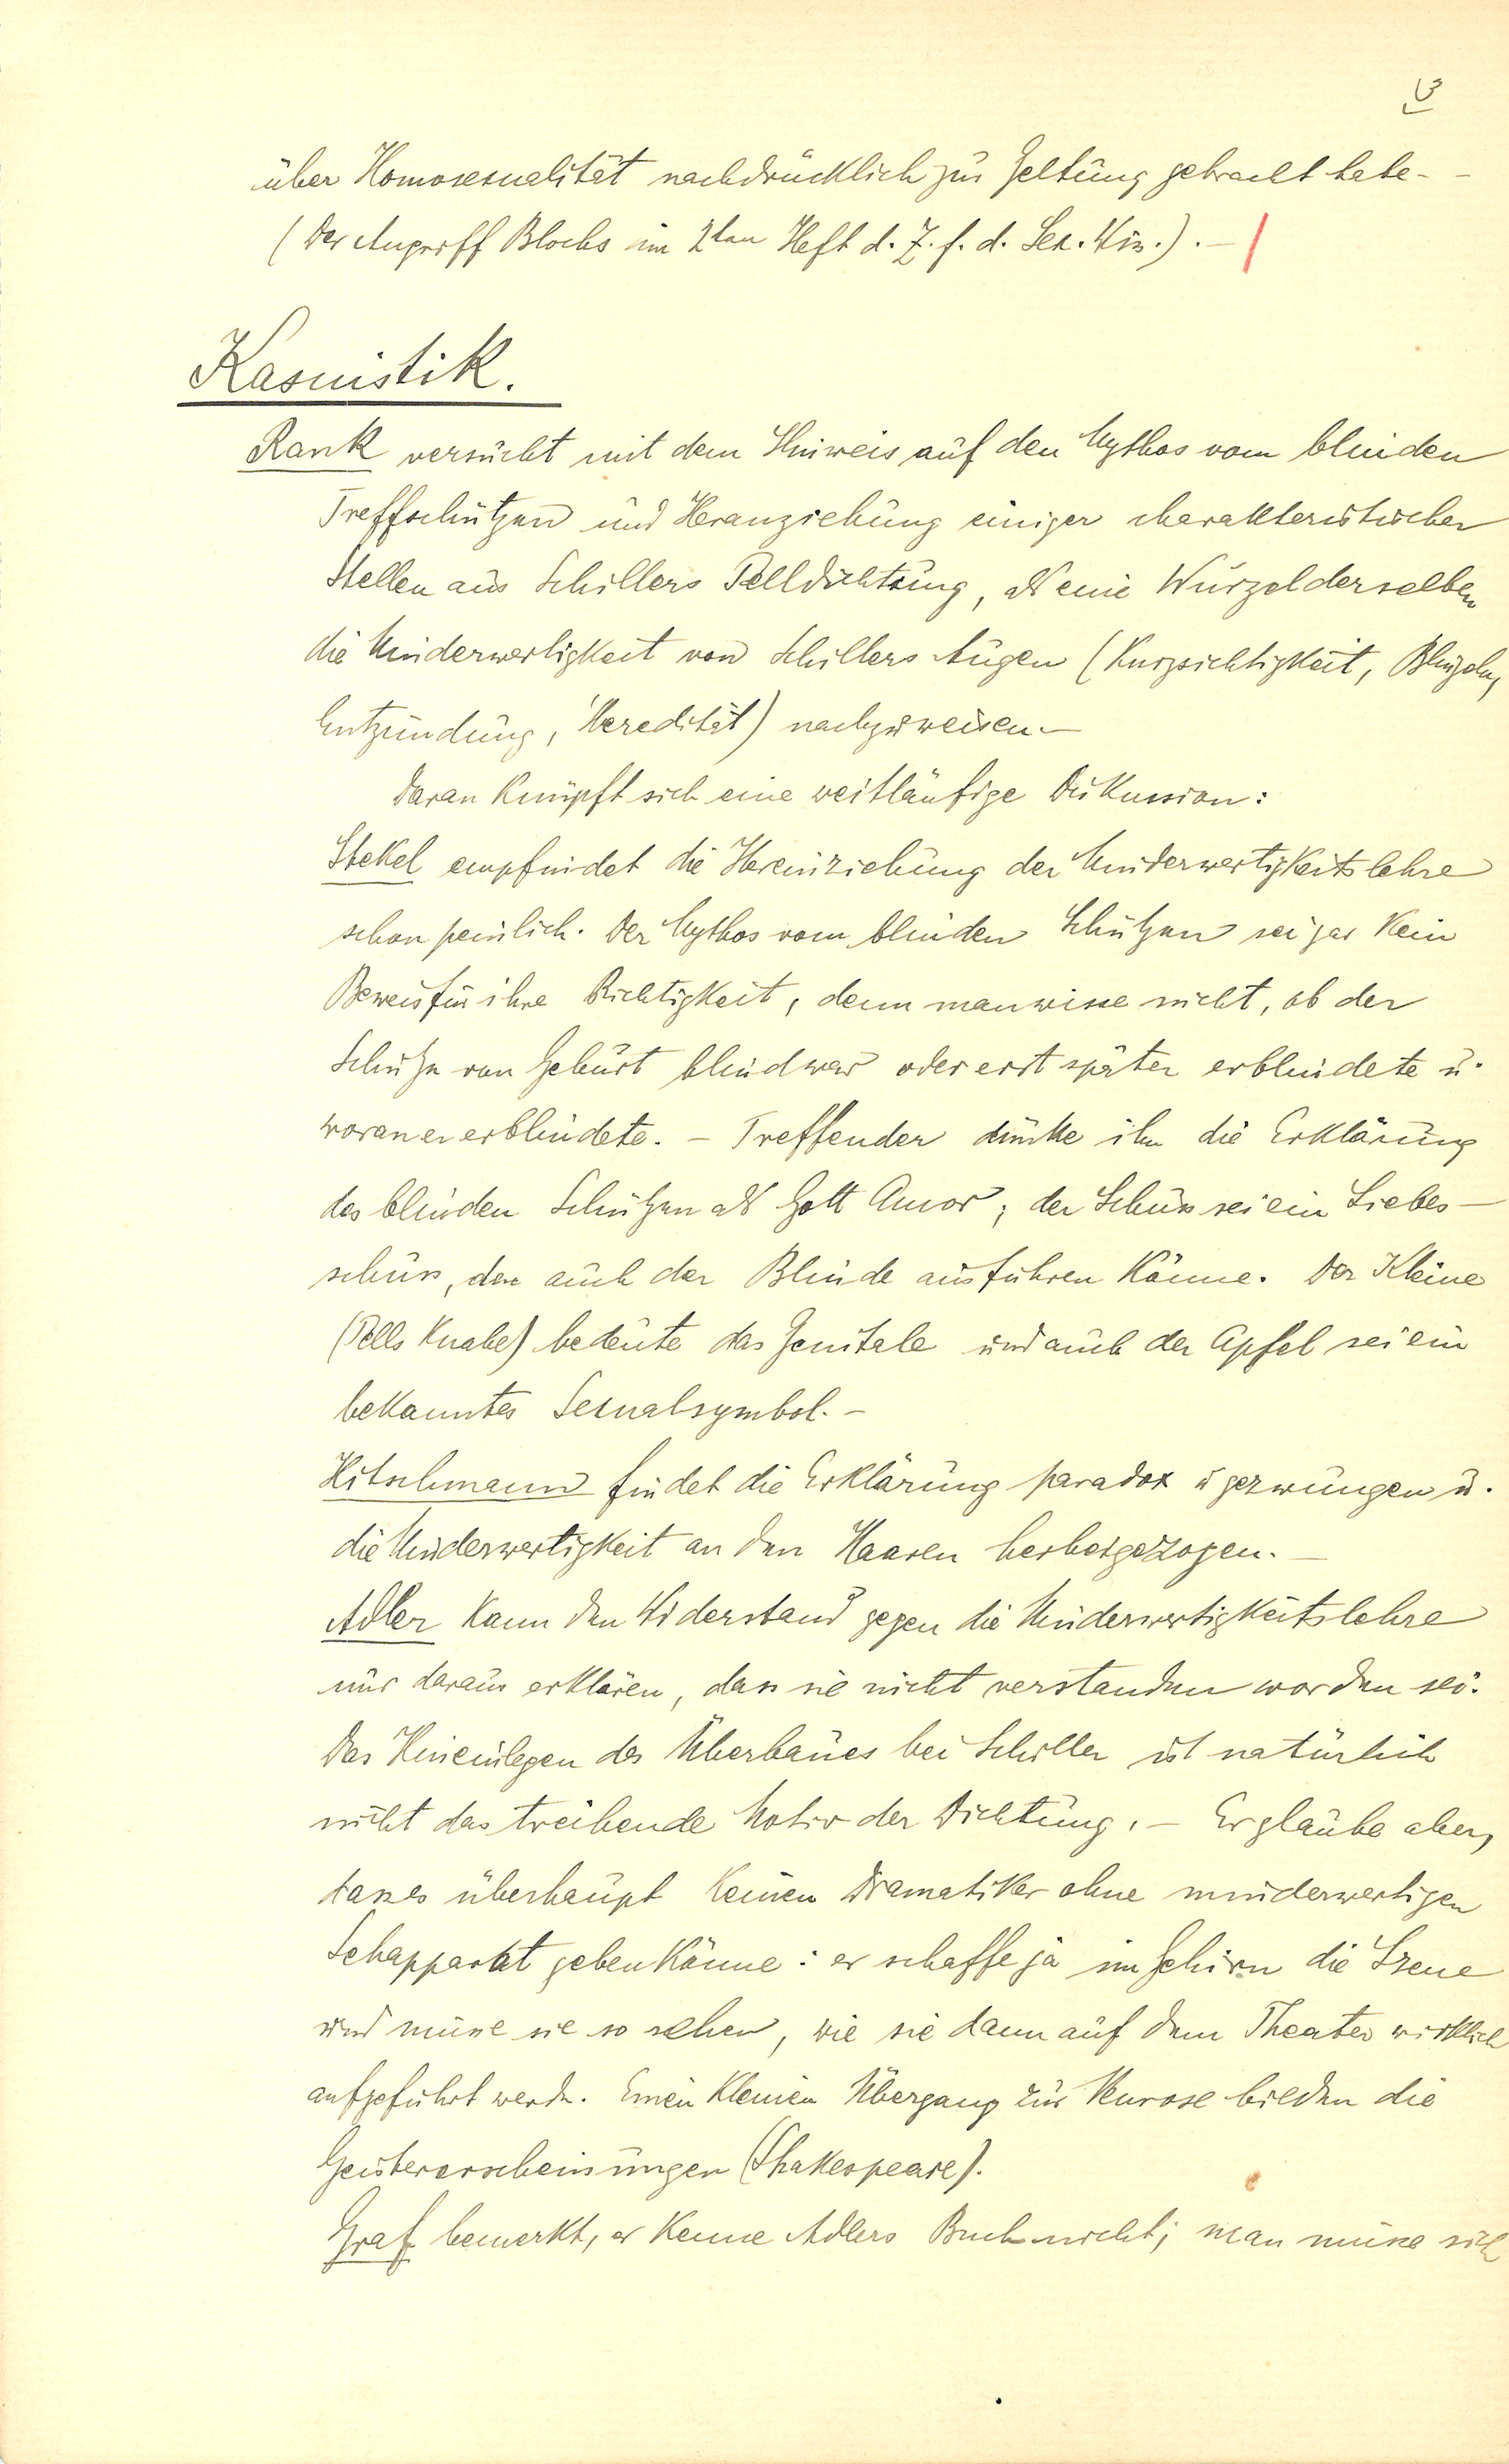 3
über Homosexualität nachdrücklich zur Geltung gebracht habe. -
(Der Angriff Blochs im 2ten Heft d. Z. f. d. Sex. Wiss.). -
Kasuistik.
Rank versucht mit dem Hinweis auf den Mythos vom blinden
Treffschützen und Heranziehung einiger charakteristischer
Stellen aus Schillers Telldichtung, als eine Wurzel derselben
die Minderwertigkeit von Schillers Augen (Kurzsichtigkeit, Blinzeln,
Entzündung, Heredität) nachzuweisen. -
Daran knüpft sich eine weitläufige Diskussion:
Stekel empfindet die Hereinziehung der Minderwertigkeitslehre
schon peinlich. Der Mythos vom blinden Schützen sei gar kein
Beweis für ihre Richtigkeit, denn man wisse nicht, ob der
Schütze von Geburt blind war oder erst später erblindete u.
woran er erblindete. - Treffender dünke ihn die Erklärung
des blinden Schützen als Gott Amor; der Schuss sei ein Liebes-
schuss, den auch der Blinde ausführen könne. Der Kleine
(Tells Knabe) bedeute das Genitale und auch der Apfel sei ein
bekanntes Sexualsymbol. -
Hitschmann findet die Erklärung paradox u gezwungen u.
die Minderwertigkeit an den Haaren herbeigezogen. -
Adler kann den Widerstand gegen die Minderwertigkeitslehre
nur daraus erklären, dass sie nicht verstanden worden sei.
Das Hineinlegen des Überbaues bei Schiller ist natürlich
nicht das treibende Motiv der Dichtung. - Er glaube aber,
dass es überhaupt keinen Dramatiker ohne minderwertigen
Sehapparat geben könne: er schaffe ja im Gehirn die Szene
und müsse sie so sehen, wie sie dann auf dem Theater wirklich
aufgeführt werde. Einen kleinen Übergang zur Neurose bilden die
Geistererscheinungen (Shakespeare).
Graf bemerkt, er kenne Adlers Buch nicht; man müsse sich